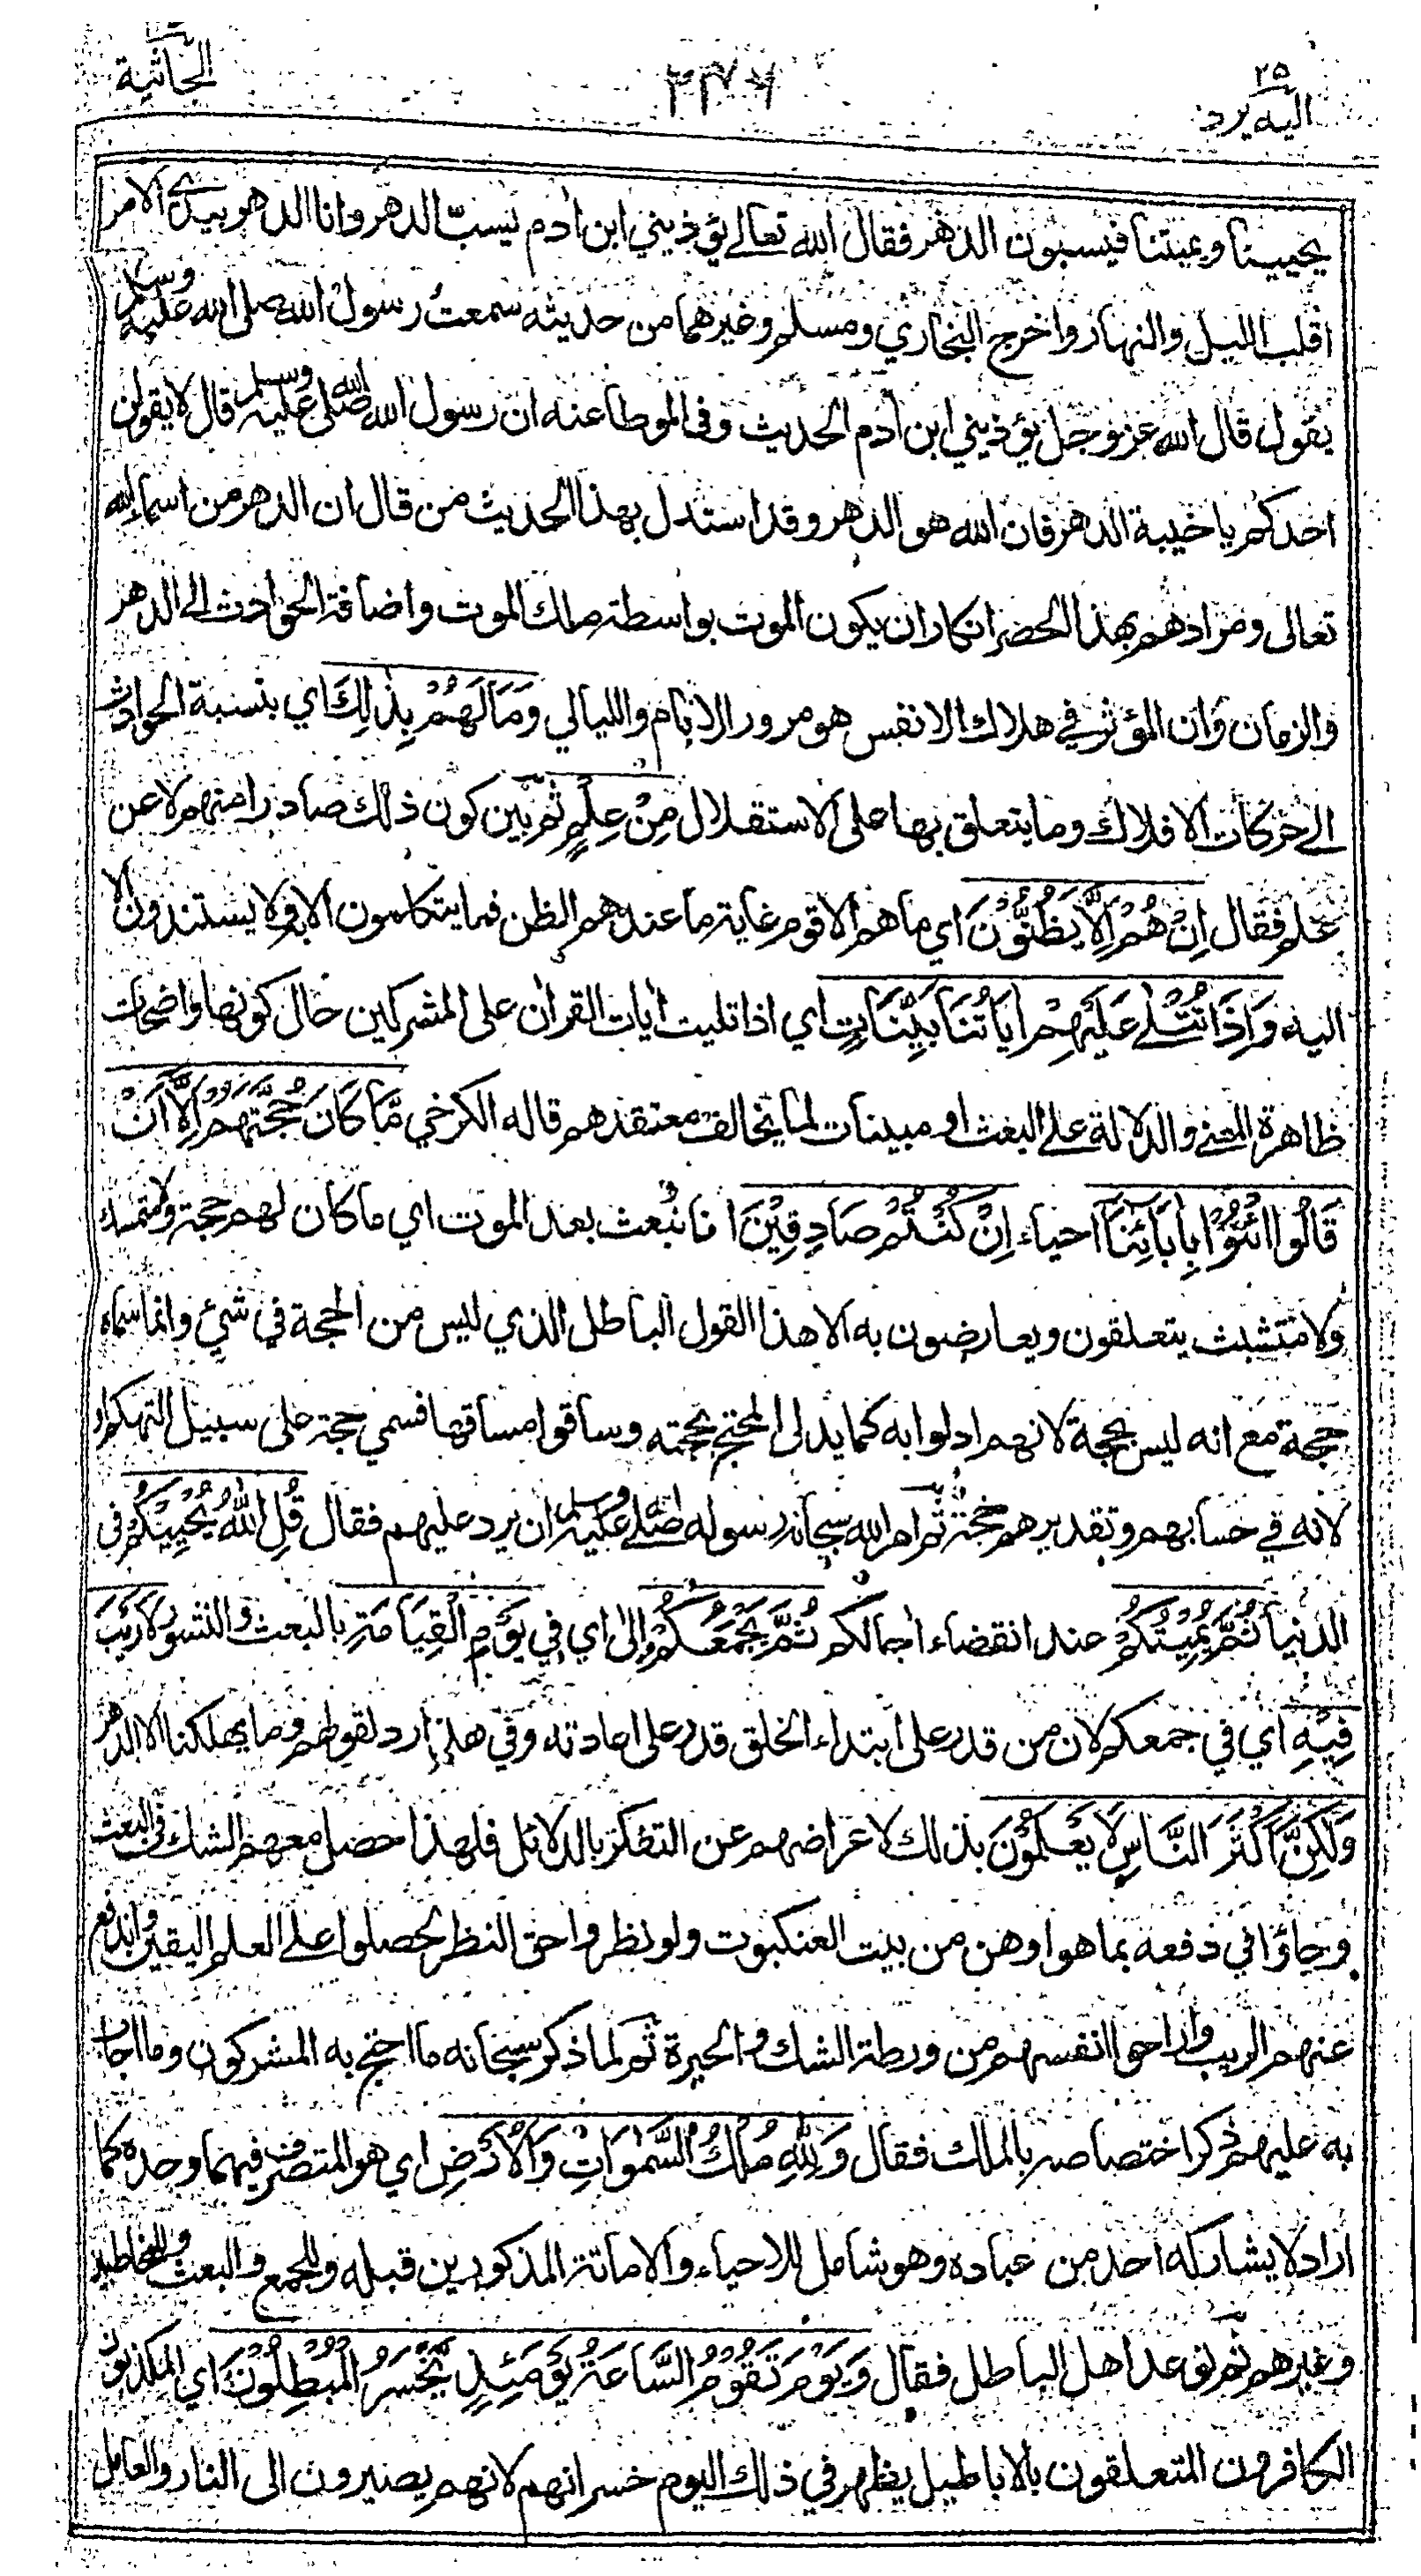 ٢٥
اليه يرد
الجاثية
يحيينا ويميتنا فيسبون الدهر فقال الله تعالى يؤذيني ابن ادم يسبّ الدهر وانا الدهر بيدي الامر
اقلب الليل والنهار واخرج البخاري ومسلم وغيرهما من حديثه سمعت رسول الله صلى الله عليه وسلم
يقول قال الله عز وجل يؤذيني ابن ادم الحديث وفى الموطا عنه ان رسول الله صلى الله عليه وسلم قال لا يقولن
احدكم يا خيبة الدهر فان الله هو الدهر وقد استدل بهذا الحديث من قال ان الدهر من اسماء الله
تعالى ومرادهم بهذا الحصر انكار ان يكون الموت بواسطة ملك الموت واضافة الحوادث الى الدهر
والزمان وان المؤثر في هلاك الانفس هو مرور الايام والليالي وَمَا لَهُمْ بِذٰلِكَ اي بنسبة الحوادث
الى حركات الافلاك وما يتعلق بها على الاستقلال مِنْ عِلْمٍ ثم بين كون ذلك صادرا منهم لا عن
علم فقال اِنْ هُمْ اِلَّا يَظُنُّوْنَ اي ما هم الا قوم غاية ما عندهم الظن فما يتكلمون الا به ولا يستندون الا
اليه وَاِذَا تُتْلٰى عَلَيْهِمْ اٰيَاتُنَا بَيِّنَاتٍ اي اذا تليت ايات القرآن على المشركين حال كونها واضحات
ظاهرة المعنى والدلالة على البعث او مبينات لما يخالف معتقدهم قاله الكرخي مَّا كَانَ حُجَّتَهُمْ اِلَّا اَنْ
قَالُوا ائْتُوْا بِاٰبَائِنَا احياء اِنْ كُنْتُمْ صَادِقِيْنَ انا نُبعث بعد الموت اي ما كان لهم حجة ولا متمسك
ولا متشبث يتعلقون ويعارضون به الا هذا القول الباطل الذي ليس من الحجة في شئ وانما سماه
حجة مع انه ليس بحجة لانهم ادلوا به كما يدلى المحتج بحجته وساقوا مساقها فسمي حجة على سبيل التهكم او
لانه في حسابهم وتقديرهم حجة ثم امر الله سبحانه رسوله صلى الله عليه وسلم ان يرد عليهم فقال قُلِ اللّٰهُ يُحْيِيْكُمْ فى
الدنيا ثُمَّ يُمِيْتُكُمْ عند انقضاء اجالكم ثُمَّ يَجْمَعُكُمْ اِلٰى اي في يَوْمِ الْقِيَامَةِ بالبعث والنشور لَا رَيْبَ
فِيْهِ اي في جمعكم لان من قدر على ابتداء الخلق قدر على اعادته وفي هذا رد لقولهم وما يهلكنا الا الدهر
وَلٰكِنَّ اَكْثَرَ النَّاسِ لَا يَعْلَمُوْنَ بذلك لاعراضهم عن التفكر بالدلائل فلهذا حصل معهم الشك في البعث
وجاؤا في دفعه بما هو اوهن من بيت العنكبوت ولو نظروا حق النظر لحصلوا على العلم اليقين واندفع
عنهم الريب واراحوا انفسهم من ورطة الشك والحيرة ثم لما ذكر سبحانه ما احتج به المشركون وما اجاب
به عليهم ذكر اختصاصه بالملك فقال وَلِلّٰهِ مُلْكُ السَّمٰوَاتِ وَالْاَرْضِ اي هو المتصرف فيهما وحده كما
اراد لا يشاركه احد من عباده وهو شامل للاحياء والاماتة المذكورين قبله وللجمع والبعث وللمخاطبين
وغيرهم ثم توعد اهل الباطل فقال وَيَوْمَ تَقُوْمُ السَّاعَةُ يَوْمَئِذٍ يَّخْسَرُ الْمُبْطِلُوْنَ اي المكذبون
الكافرون المتعلقون بالاباطيل يظهر في ذلك اليوم خسرانهم لانهم يصيرون الى النار والعامل